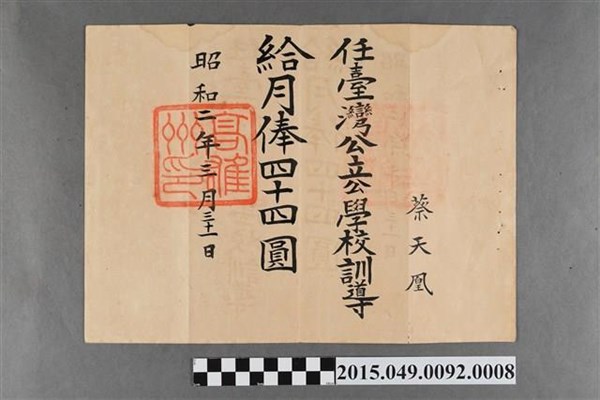 蔡天凰
任臺灣公立公學校訓導
給月俸四十四圓
昭和二年三月三十一日
高雄州印
2015.049.0092.0008